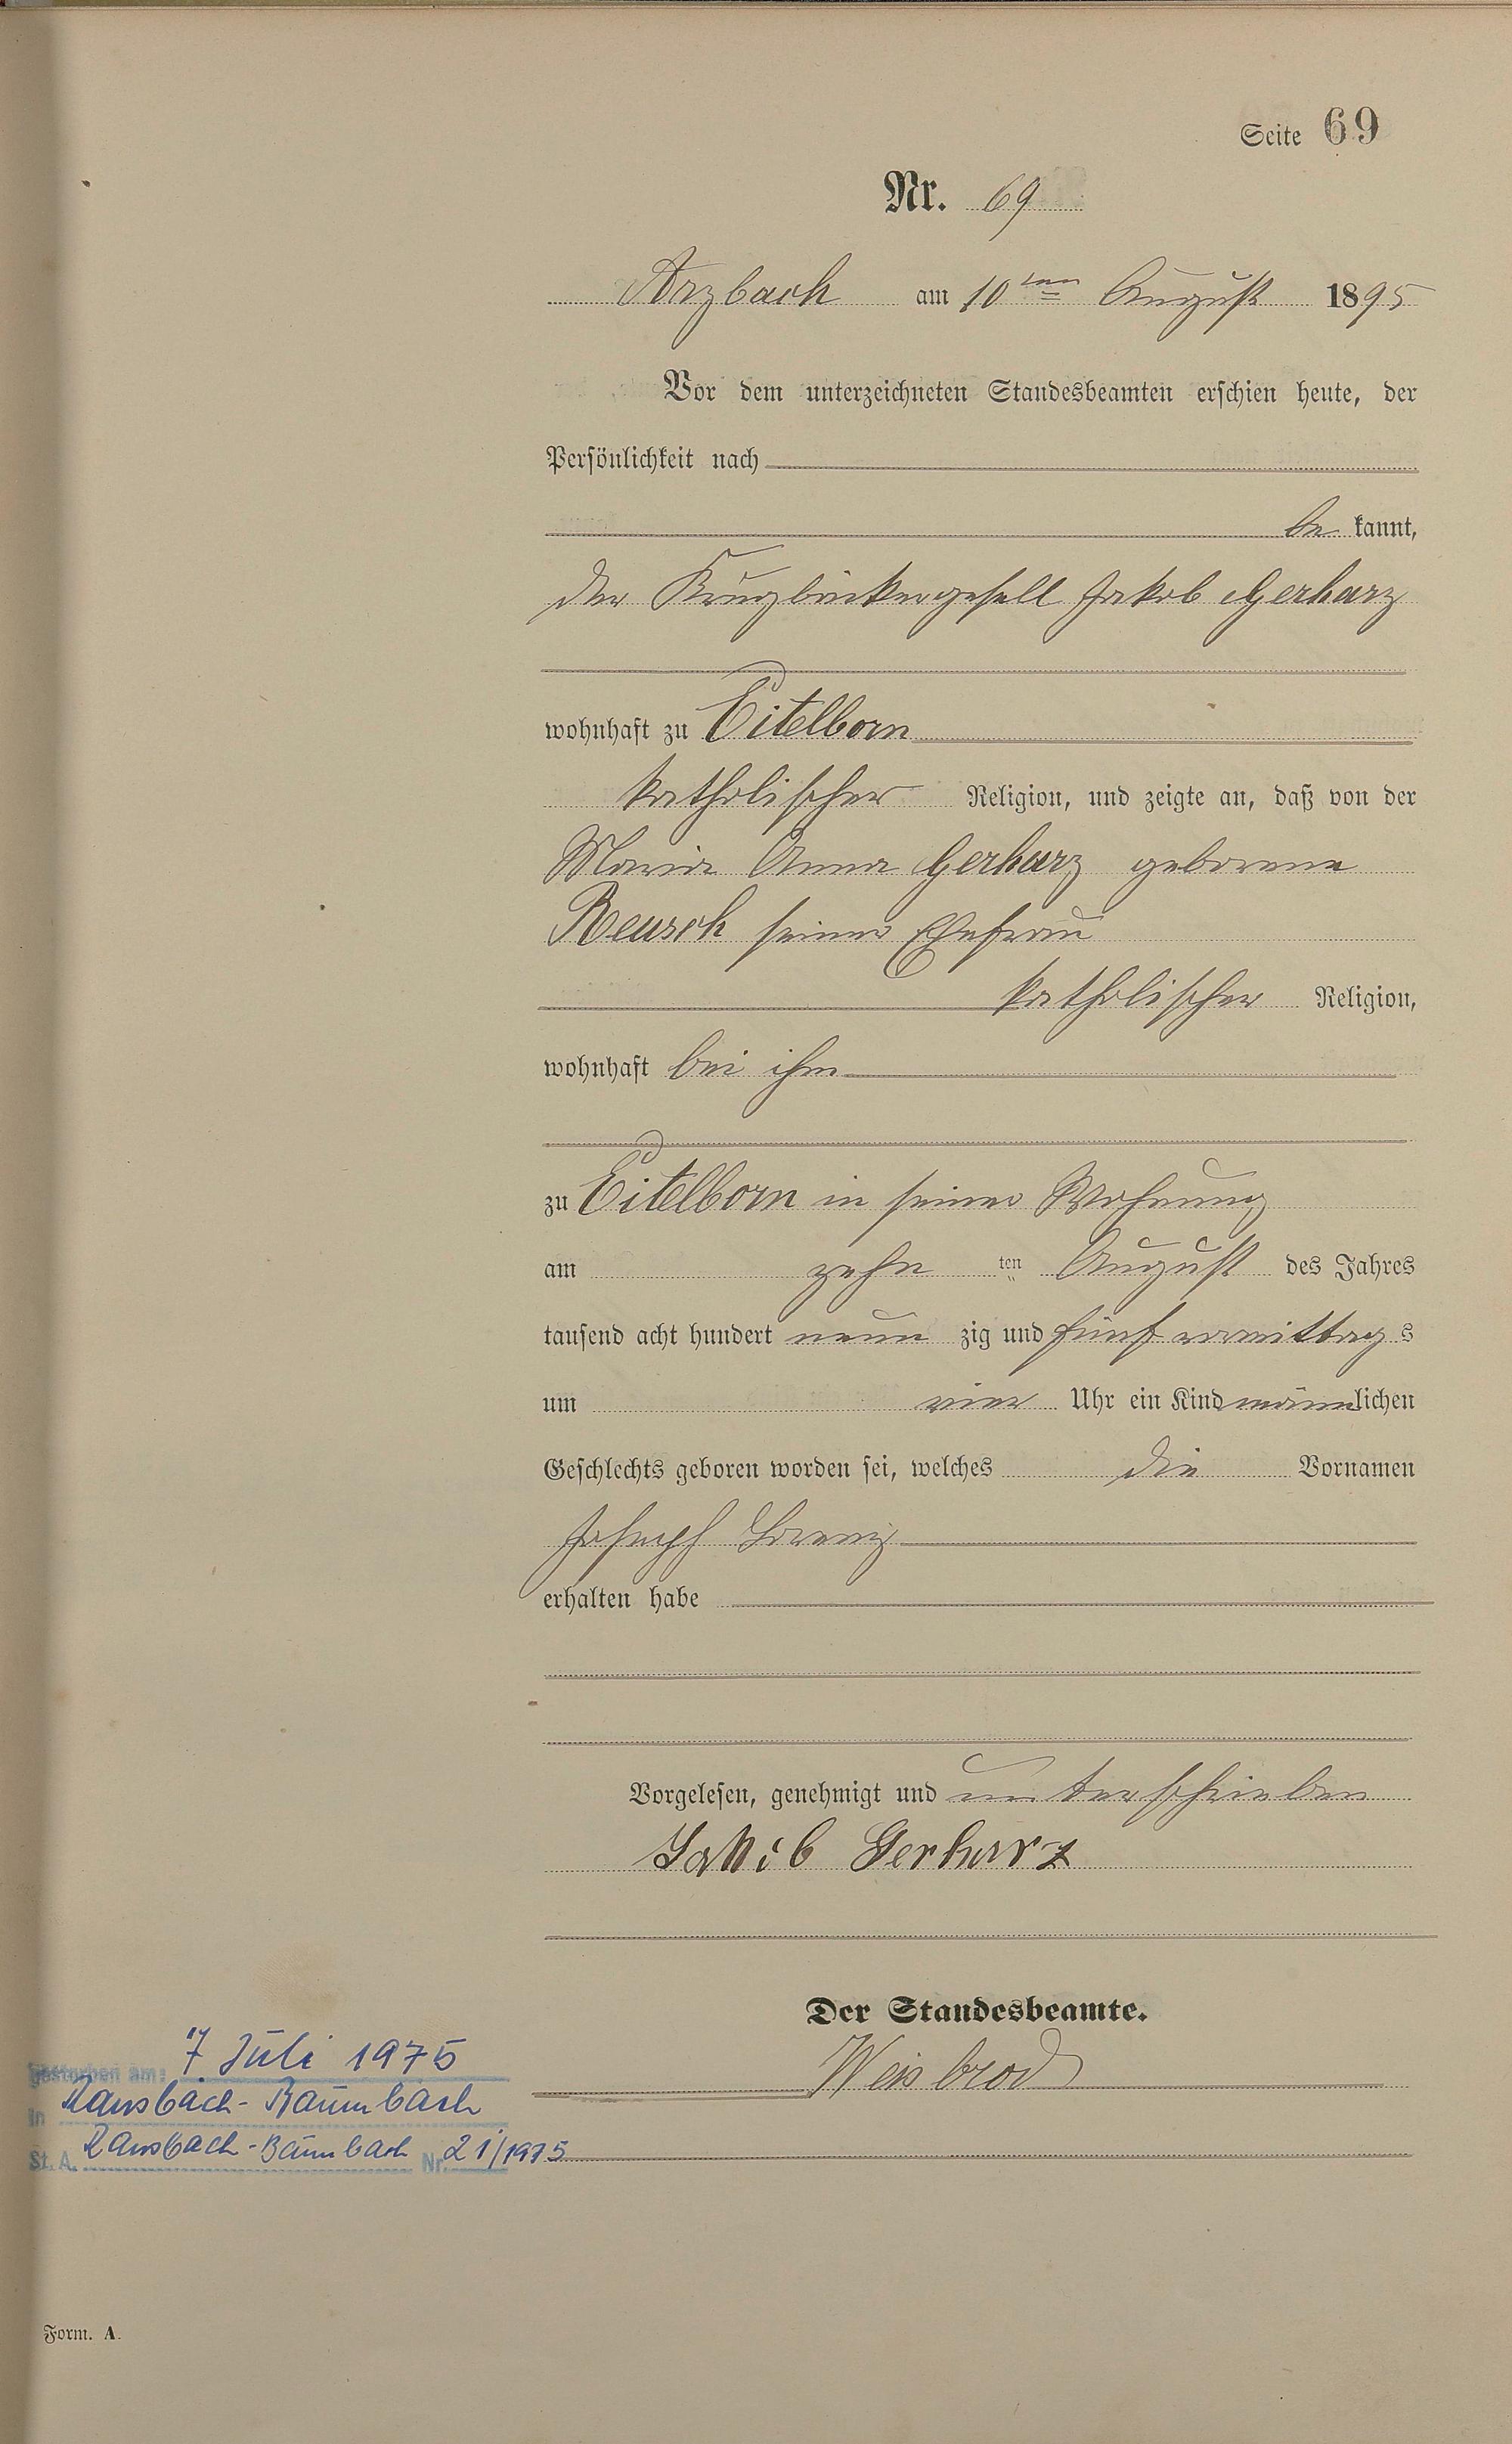 Seite 69
Nr. 69
Arzbach am 10ten August 1895
Vor dem unterzeichneten Standesbeamten erschien heute, der
Persönlichkeit nach
be kannt,
der Krugbäckergesell Jakob Gerharz
wohnhaft zu Eitelborn
katholischer Religion, und zeigte an, daß von der
Maria Anna Gerharz geborene
Reusch seiner Ehefrau
katholischer Religion,
wohnhaft bei ihm
zu Eitelborn in seiner Wohnung
am zehn ten August des Jahres
tausend acht hundert neun zig und fünf vormittag s
um vier Uhr ein Kind männlichen
Geschlechts geboren worden sei, welches die Vornamen
Joseph Lorenz
erhalten habe
Vorgelesen, genehmigt und unterschrieben
Jakob Gerharz
Der Standesbeamte.
Weisbrod
gestorben am: 7 Juli 1975
in Ransbach-Baumbach
St. A. Ransbach-Baumbach Nr. 21/1975
Form. A.